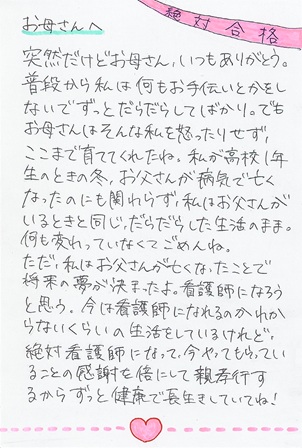 お母さんへ
絶対合格
突然だけどお母さん、いつもありがとう。
普段から私は何もお手伝いとかをし
ないでずっとだらだらしてばかり。でも
お母さんはそんな私を怒ったりせず、
ここまで育ててくれたね。私が高校1年
生のときの冬、お父さんが病気で亡く
なったのにも関わらず、私はお父さんが
いるときと同じ、だらだらした生活のまま。
何も変わっていなくてごめんね。
ただ、私はお父さんが亡くなったことで
将来の夢が決まったよ。看護師になろう
と思う。今は看護師になれるのかわか
らないくらいの生活をしているけれど、
絶対看護師になって、今やってもらってい
ることの感謝を倍にして親孝行す
るからずっと健康で長生きしていてね!